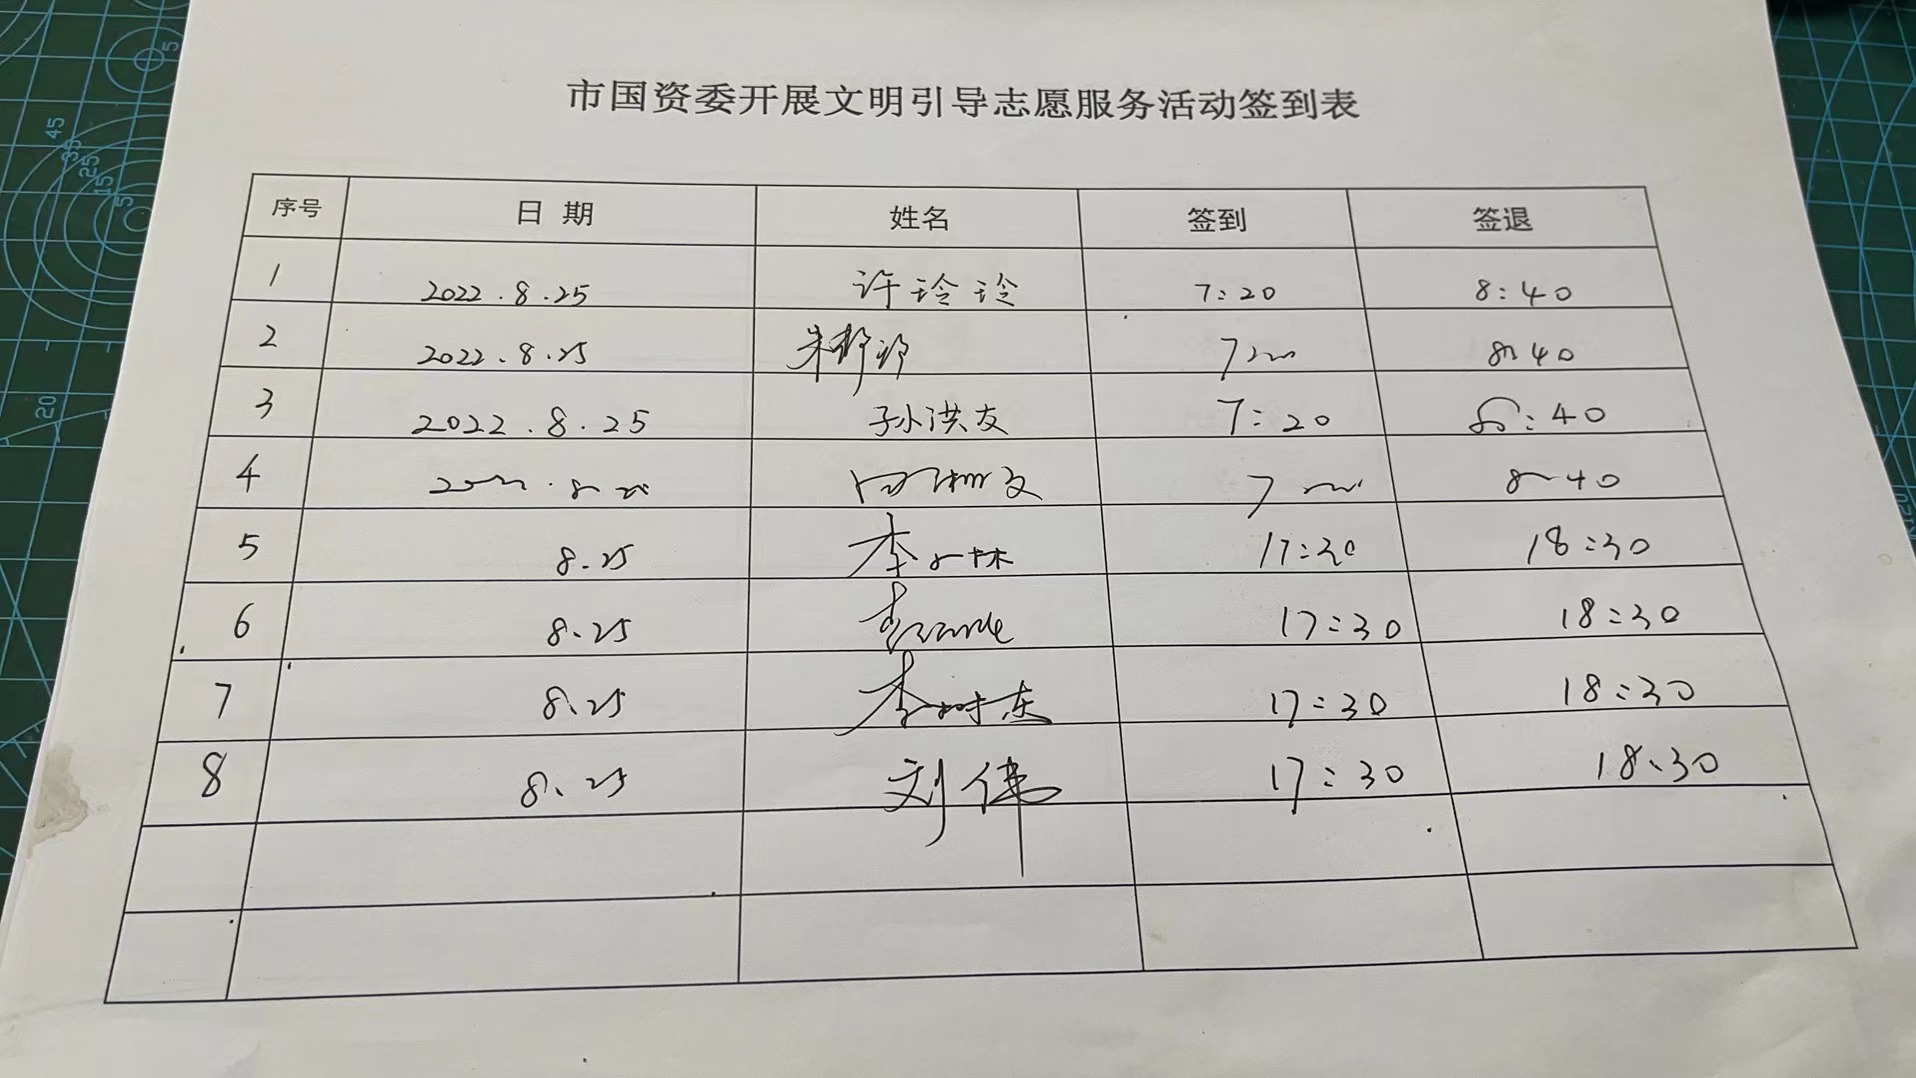 市国资委开展文明引导志愿服务活动签到表
序号 日 期 姓名 签到 签退
1 2022.8.25 许玲玲 7:20 8:40
2 2022.8.25 朱 8 40
3 2022.8.25 孙洪友 7:20 8:40
4 7 8 40
5 8.25 李 林 17:30 18:30
6 8.25 17:30 18:30
7 8.25 李树东 17:30 18:30
8 8.25 刘伟 17:30 18:30